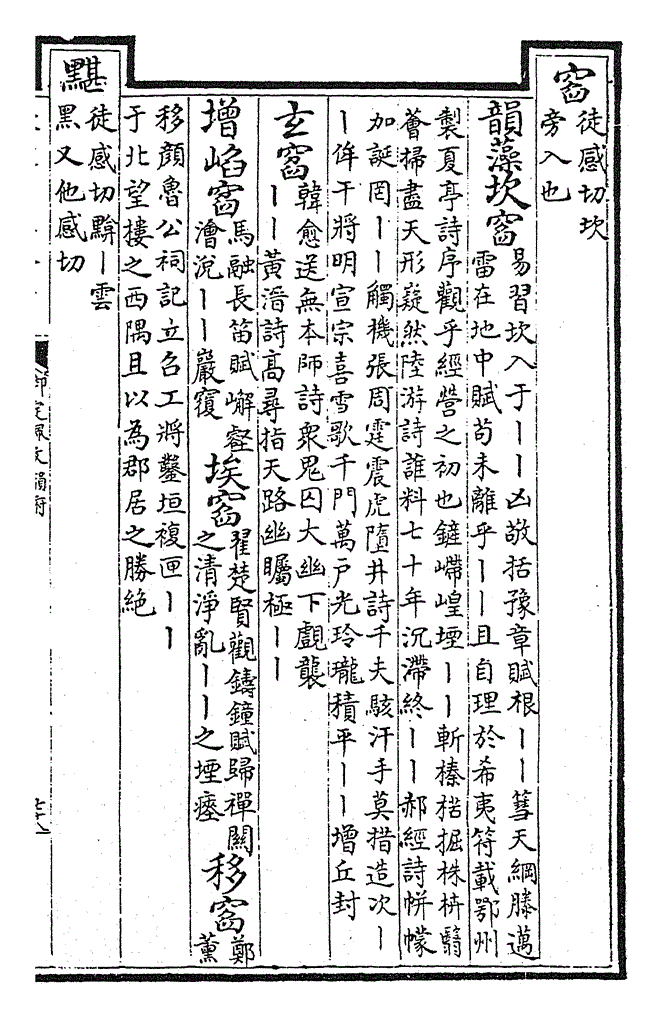 窞徒感切坎
旁入也
韻藻坎窞易習坎入于丨丨凶敬括豫章賦根丨丨篲天綱滕邁
雷在地中賦苟未離乎丨丨且自理於希夷符載鄂州
製夏亭詩序觀乎經營之初也鏟嵽崲堙丨丨斬榛楛掘株枿翳
薈掃盡天形嶷然陸游詩誰料七十年沉滯終丨丨郝經詩帡幪
加誕罔丨丨觸機張周霆震虎墮井詩千夫駭汗手莫措造次丨
丨侔干將明宣宗喜雪歌千門萬戶光玲瓏積平丨丨增丘封
玄窞韓愈送無本師詩衆鬼囚大幽下覰襲
丨丨黃溍詩高尋指天路幽矚極丨丨
增㟅窞馬融長笛賦嶰壑
澮㳿丨丨巖䆠
埃窞翟楚賢觀鑄鐘賦歸禪關
之清淨亂丨丨之堙瘞
移窞鄭薰
移顔魯公祠記立召工將鑿垣複匣丨丨
于北望樓之西隅且以為郡居之勝絶
黮徒感切黭丨雲
黑又他感切